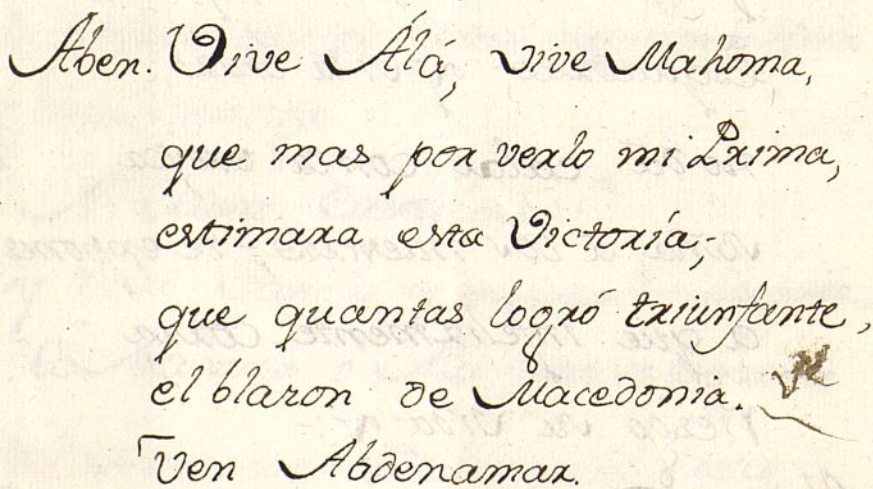 Aben. Vive Álá, vive Mahoma,
que mas por verlo mi Prima,
estimara esta Victoria,
que quantas logró triunfante,
el blazon de Macedonia.
Ven Abdenamar.